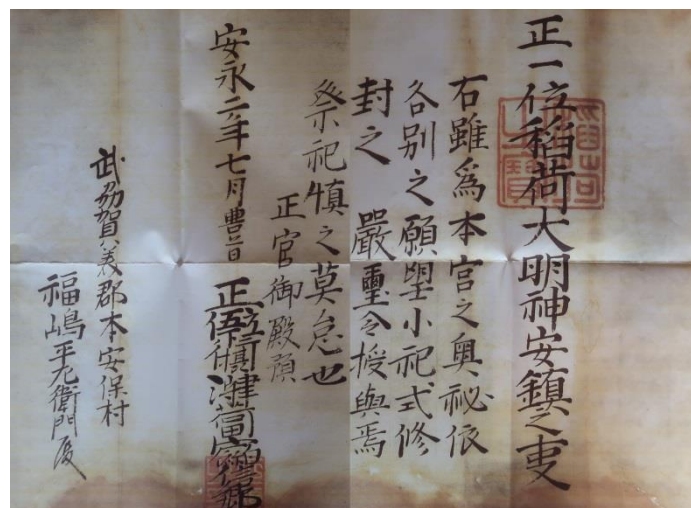 正一位稻荷大明神安鎮之叓
右雖爲本宮之奥祕依
各別之願望小祀式修
封之 嚴璽令授與焉
祭祀慎之莫怠也
正官御殿預
安永二年七月
正
武刕賀美郡本安保村
福嶋平 衛門殿